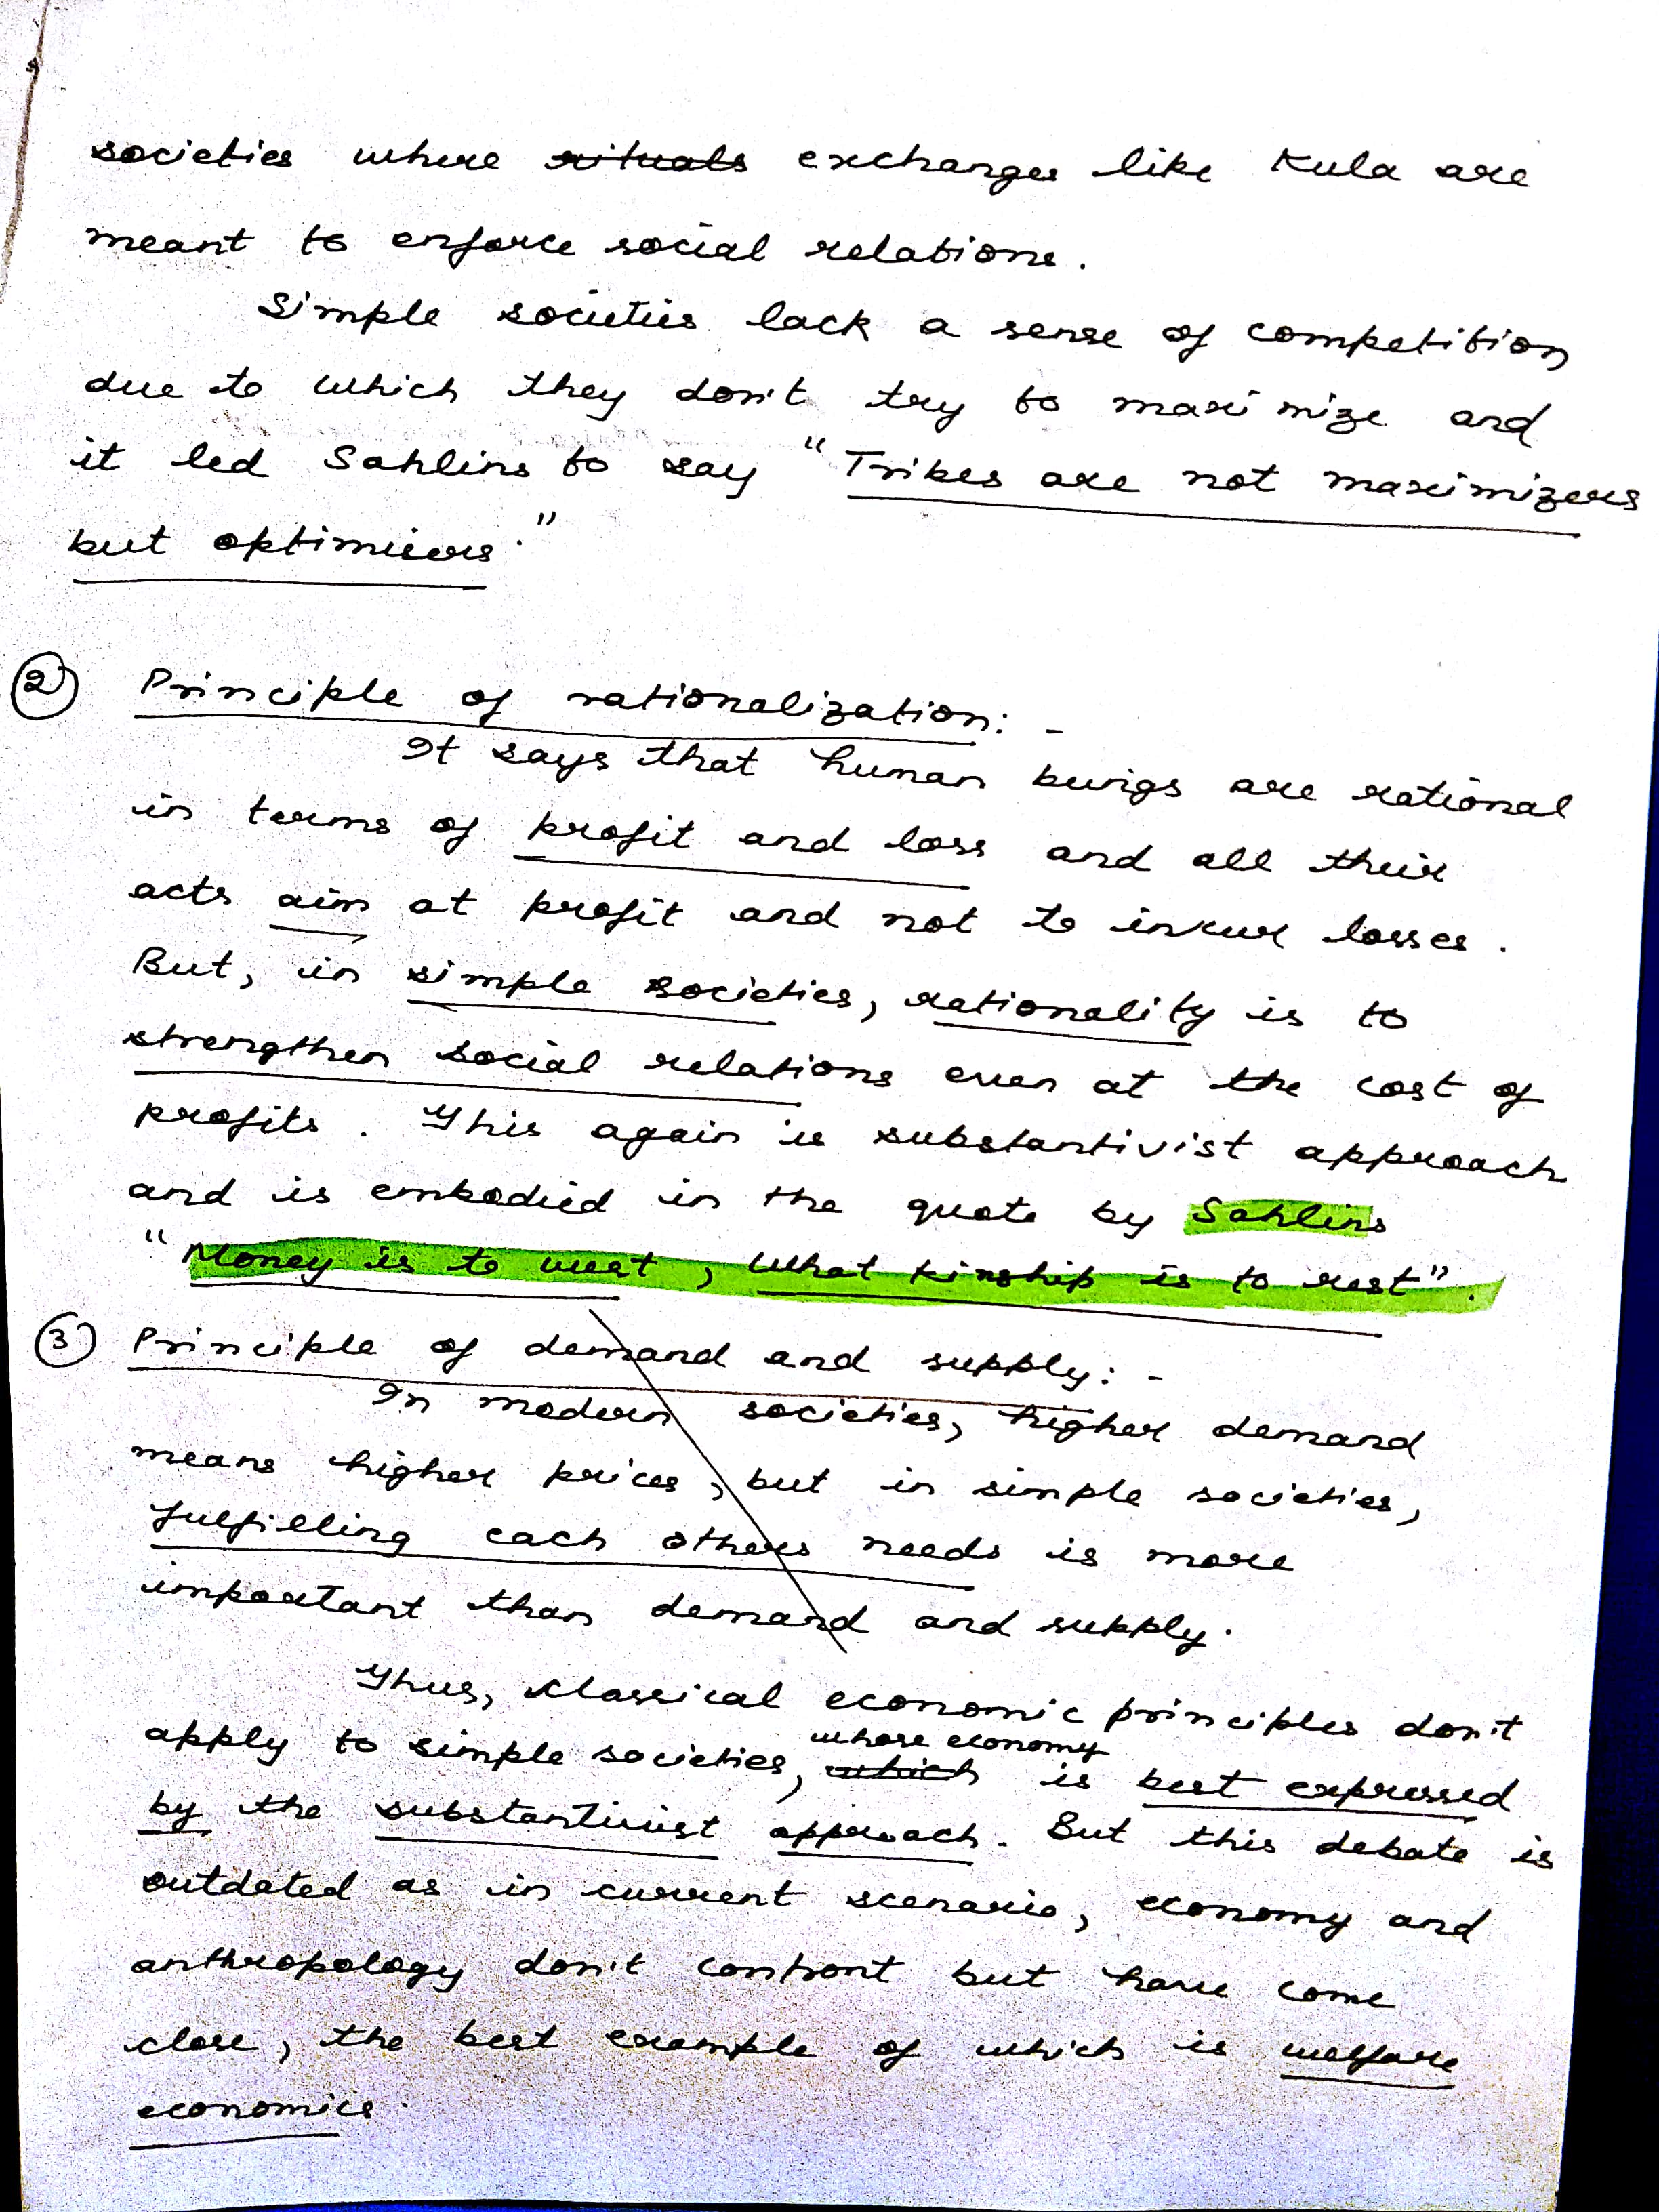 societies where rituals exchanges like Kula are
meant to enforce social relations.
Simple societies lack a sense of competition
due to which they don't try to maximize and
it led Sahlins to say "Tribes are not maximizers
but optimisers."
② Principle of rationalization:-
It says that human beings are rational
in terms of profit and loss and all their
acts aim at profit and not to incur losses.
But, in simple societies, rationality is to
strengthen social relations even at the cost of
profits. This again is substantivist approach
and is embodied in the quote by Sahlins
"Money is to west, what kinship is to rest".
③ Principle of demand and supply:-
In modern societies, higher demand
means higher prices, but in simple societies,
fulfilling each others needs is more
important than demand and supply.
Thus, classical economic principles don't
whose economy
apply to simple societies, which is best expressed
by the substantivist approach. But this debate is
outdated as in current scenario, economy and
anthropology don't confront but have come
close, the best example of which is welfare
economics.